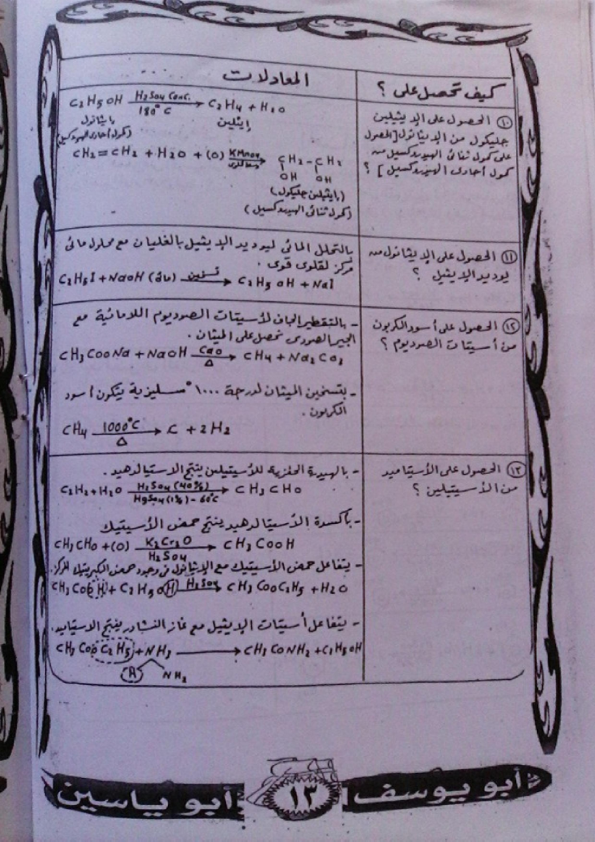 كيف تحصل على ؟
المعادلات
⑩ الحصول على الإيثيلين
جليكول من الإيثانول [الحصول
على كحول ثنائى الهيدروكسيل من
كحول أحادى الهيدروكسيل] ؟
C2H5OH —H2SO4 Conc. 180°C→ C2H4 + H2O
إيثانول إيثيلين
(كحول أحادى الهيدروكسيل)
CH2=CH2 + H2O + (O) —KMnO4→ CH2-CH2
OH OH
(إيثيلين جليكول)
(كحول ثنائى الهيدروكسيل)
⑪ الحصول على الإيثانول من
يوديد الإيثيل ؟
بالتحلل المائى ليوديد الإيثيل بالغليان مع محلول مائى
مركز لقلوى قوى .
C2H5I + NaOH —تسخين→ C2H5OH + NaI
⑫ الحصول على أسود الكربون
من أسيتات الصوديوم ؟
- بالتقطير الجاف لأسيتات الصوديوم اللامائية مع
الجير الصودى نحصل على الميثان .
CH3COONa + NaOH —CaO Δ→ CH4 + Na2CO3
- بتسخين الميثان لدرجة ١٠٠٠° سليزية يتكون أسود
الكربون .
CH4 —1000°C Δ→ C + 2H2
⑬ الحصول على الأسيتاميد
من الأسيتيلين ؟
- بالهيدرة الحفزية للأسيتيلين ينتج الاسيتالدهيد .
C2H2 + H2O —H2SO4 (40%) HgSO4 (1%) - 60°C→ CH3CHO
- بأكسدة الأسيتالدهيد ينتج حمض الأسيتيك
CH3CHO + (O) —K2Cr2O H2SO4→ CH3COOH
- يتفاعل حمض الأسيتيك مع الإيثانول فى وجود حمض الكبريتيك المركز .
CH3COOH + C2H5OH —H2SO4→ CH3COOC2H5 + H2O
- يتفاعل أسيتات الإيثيل مع غاز النشادر ينتج الاستاميد .
CH3COOC2H5 + NH3 → CH3CONH2 + C2H5OH
H NH2
أبو يوسف ١٣ أبو ياسين